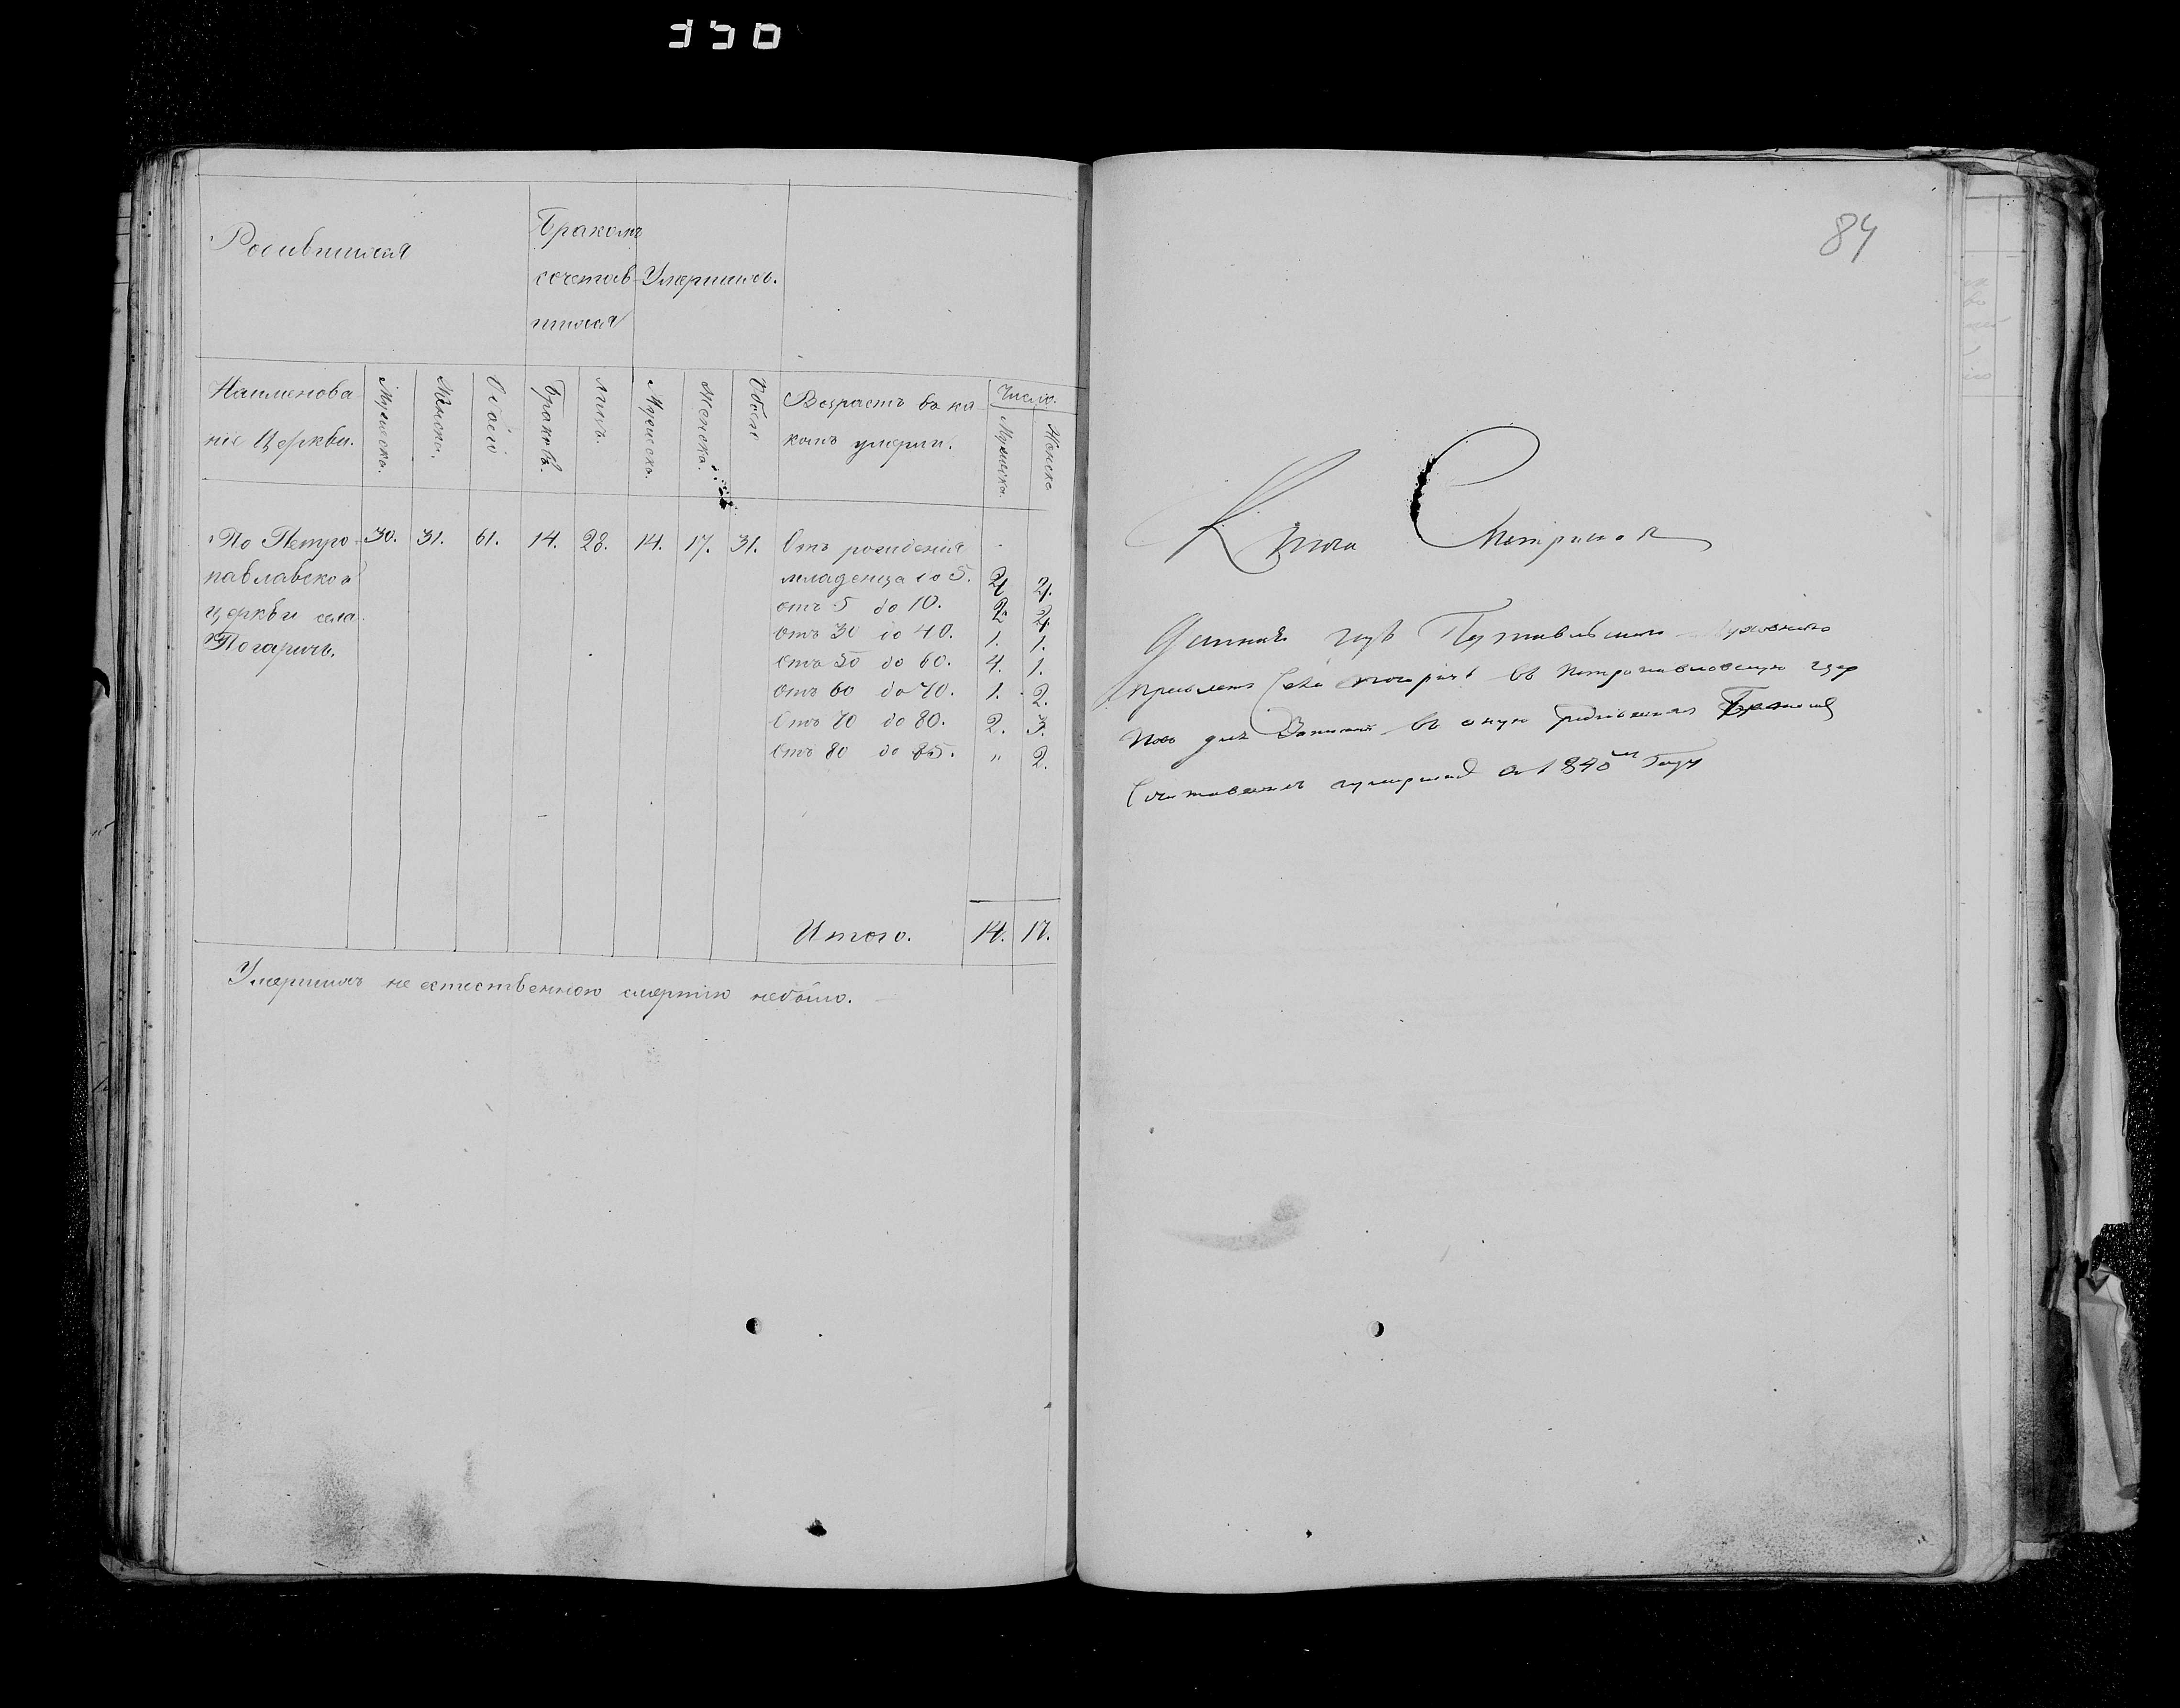 350
Родившихся
Бракомъ
сочетав-
шихся
Умершихъ.
Наименова
ніе Церкви.
Мужеска.
Женска.
Обоего
Браковъ.
лицъ.
Мужеска.
Женска.
Обоего
Возрастъ въ ка-
комъ умерли.
Число.
Мужеска.
Женска
По Петро- 30. 31. 61. 14. 28. 14. 17. 31. Отъ рожденія
павлавской младенца до 5. 4 4.
церкви села отъ 5 до 10. 2. 4
Погаричъ. отъ 30 до 40. 1. 1.
отъ 50 до 60. 4. 1.
отъ 60 до 70. 1. 2.
Отъ 70 до 80. 2. 3.
Отъ 80 до 85. " 2.
Итого. 14. 17.
Умершихъ не естественною смертію небыло.
84
Книга Метрическая
Данная изъ Путивльскаго Духовнаго
Правленія Села въ Петропавловскую цер
для Записки въ оную
умершихъ 1840 Году